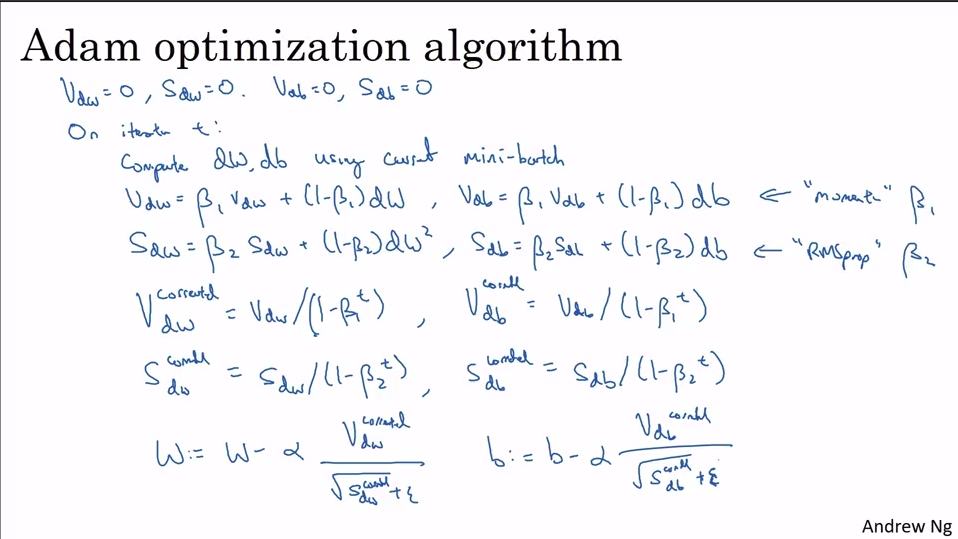 Adam optimization algorithm
V_dw = 0, S_dw = 0. V_db = 0, S_db = 0
On iteratn t:
Compute dW, db using current mini-batch
V_dw = β₁ V_dw + (1-β₁) dW, V_db = β₁ V_db + (1-β₁) db ← "moment" β₁
S_dw = β₂ S_dw + (1-β₂) dW², S_db = β₂ S_db + (1-β₂) db ← "RMSprop" β₂
V_dw^corrected = V_dw/(1-β₁^t), V_db^corrected = V_db/(1-β₁^t)
S_dw^corrected = S_dw/(1-β₂^t), S_db^corrected = S_db/(1-β₂^t)
W := W - α V_dw^corrected / (√S_dw^corrected + ε) b := b - α V_db^corrected / (√S_db^corrected + ε)
Andrew Ng